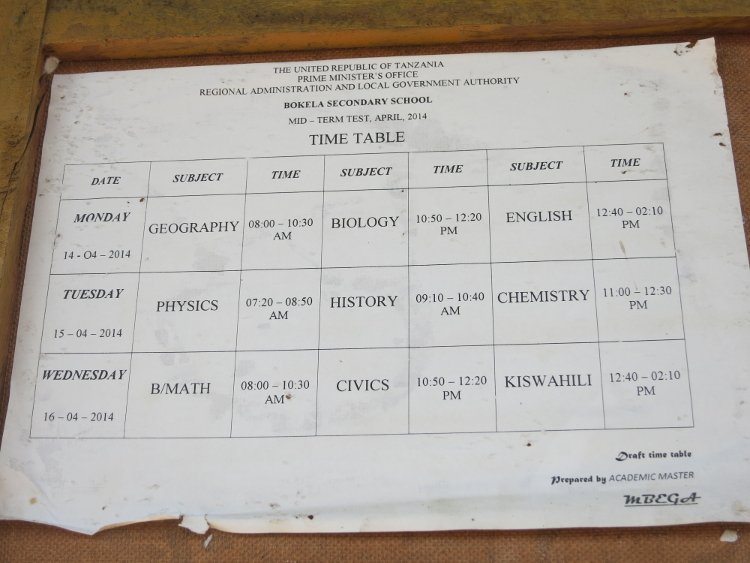 THE UNITED REPUBLIC OF TANZANIA
PRIME MINISTER'S OFFICE
REGIONAL ADMINISTRATION AND LOCAL GOVERNMENT AUTHORITY
BOKELA SECONDARY SCHOOL
MID – TERM TEST, APRIL, 2014
TIME TABLE
DATE SUBJECT TIME SUBJECT TIME SUBJECT TIME
MONDAY
14 - O4 – 2014
GEOGRAPHY
08:00 – 10:30
AM
BIOLOGY
10:50 – 12:20
PM
ENGLISH
12:40 – 02:10
PM
TUESDAY
15 – 04 – 2014
PHYSICS
07:20 – 08:50
AM
HISTORY
09:10 – 10:40
AM
CHEMISTRY
11:00 – 12:30
PM
WEDNESDAY
16 – 04 – 2014
B/MATH
08:00 – 10:30
AM
CIVICS
10:50 – 12:20
PM
KISWAHILI
12:40 – 02:10
PM
Draft time table
Prepared by ACADEMIC MASTER
MBEGA